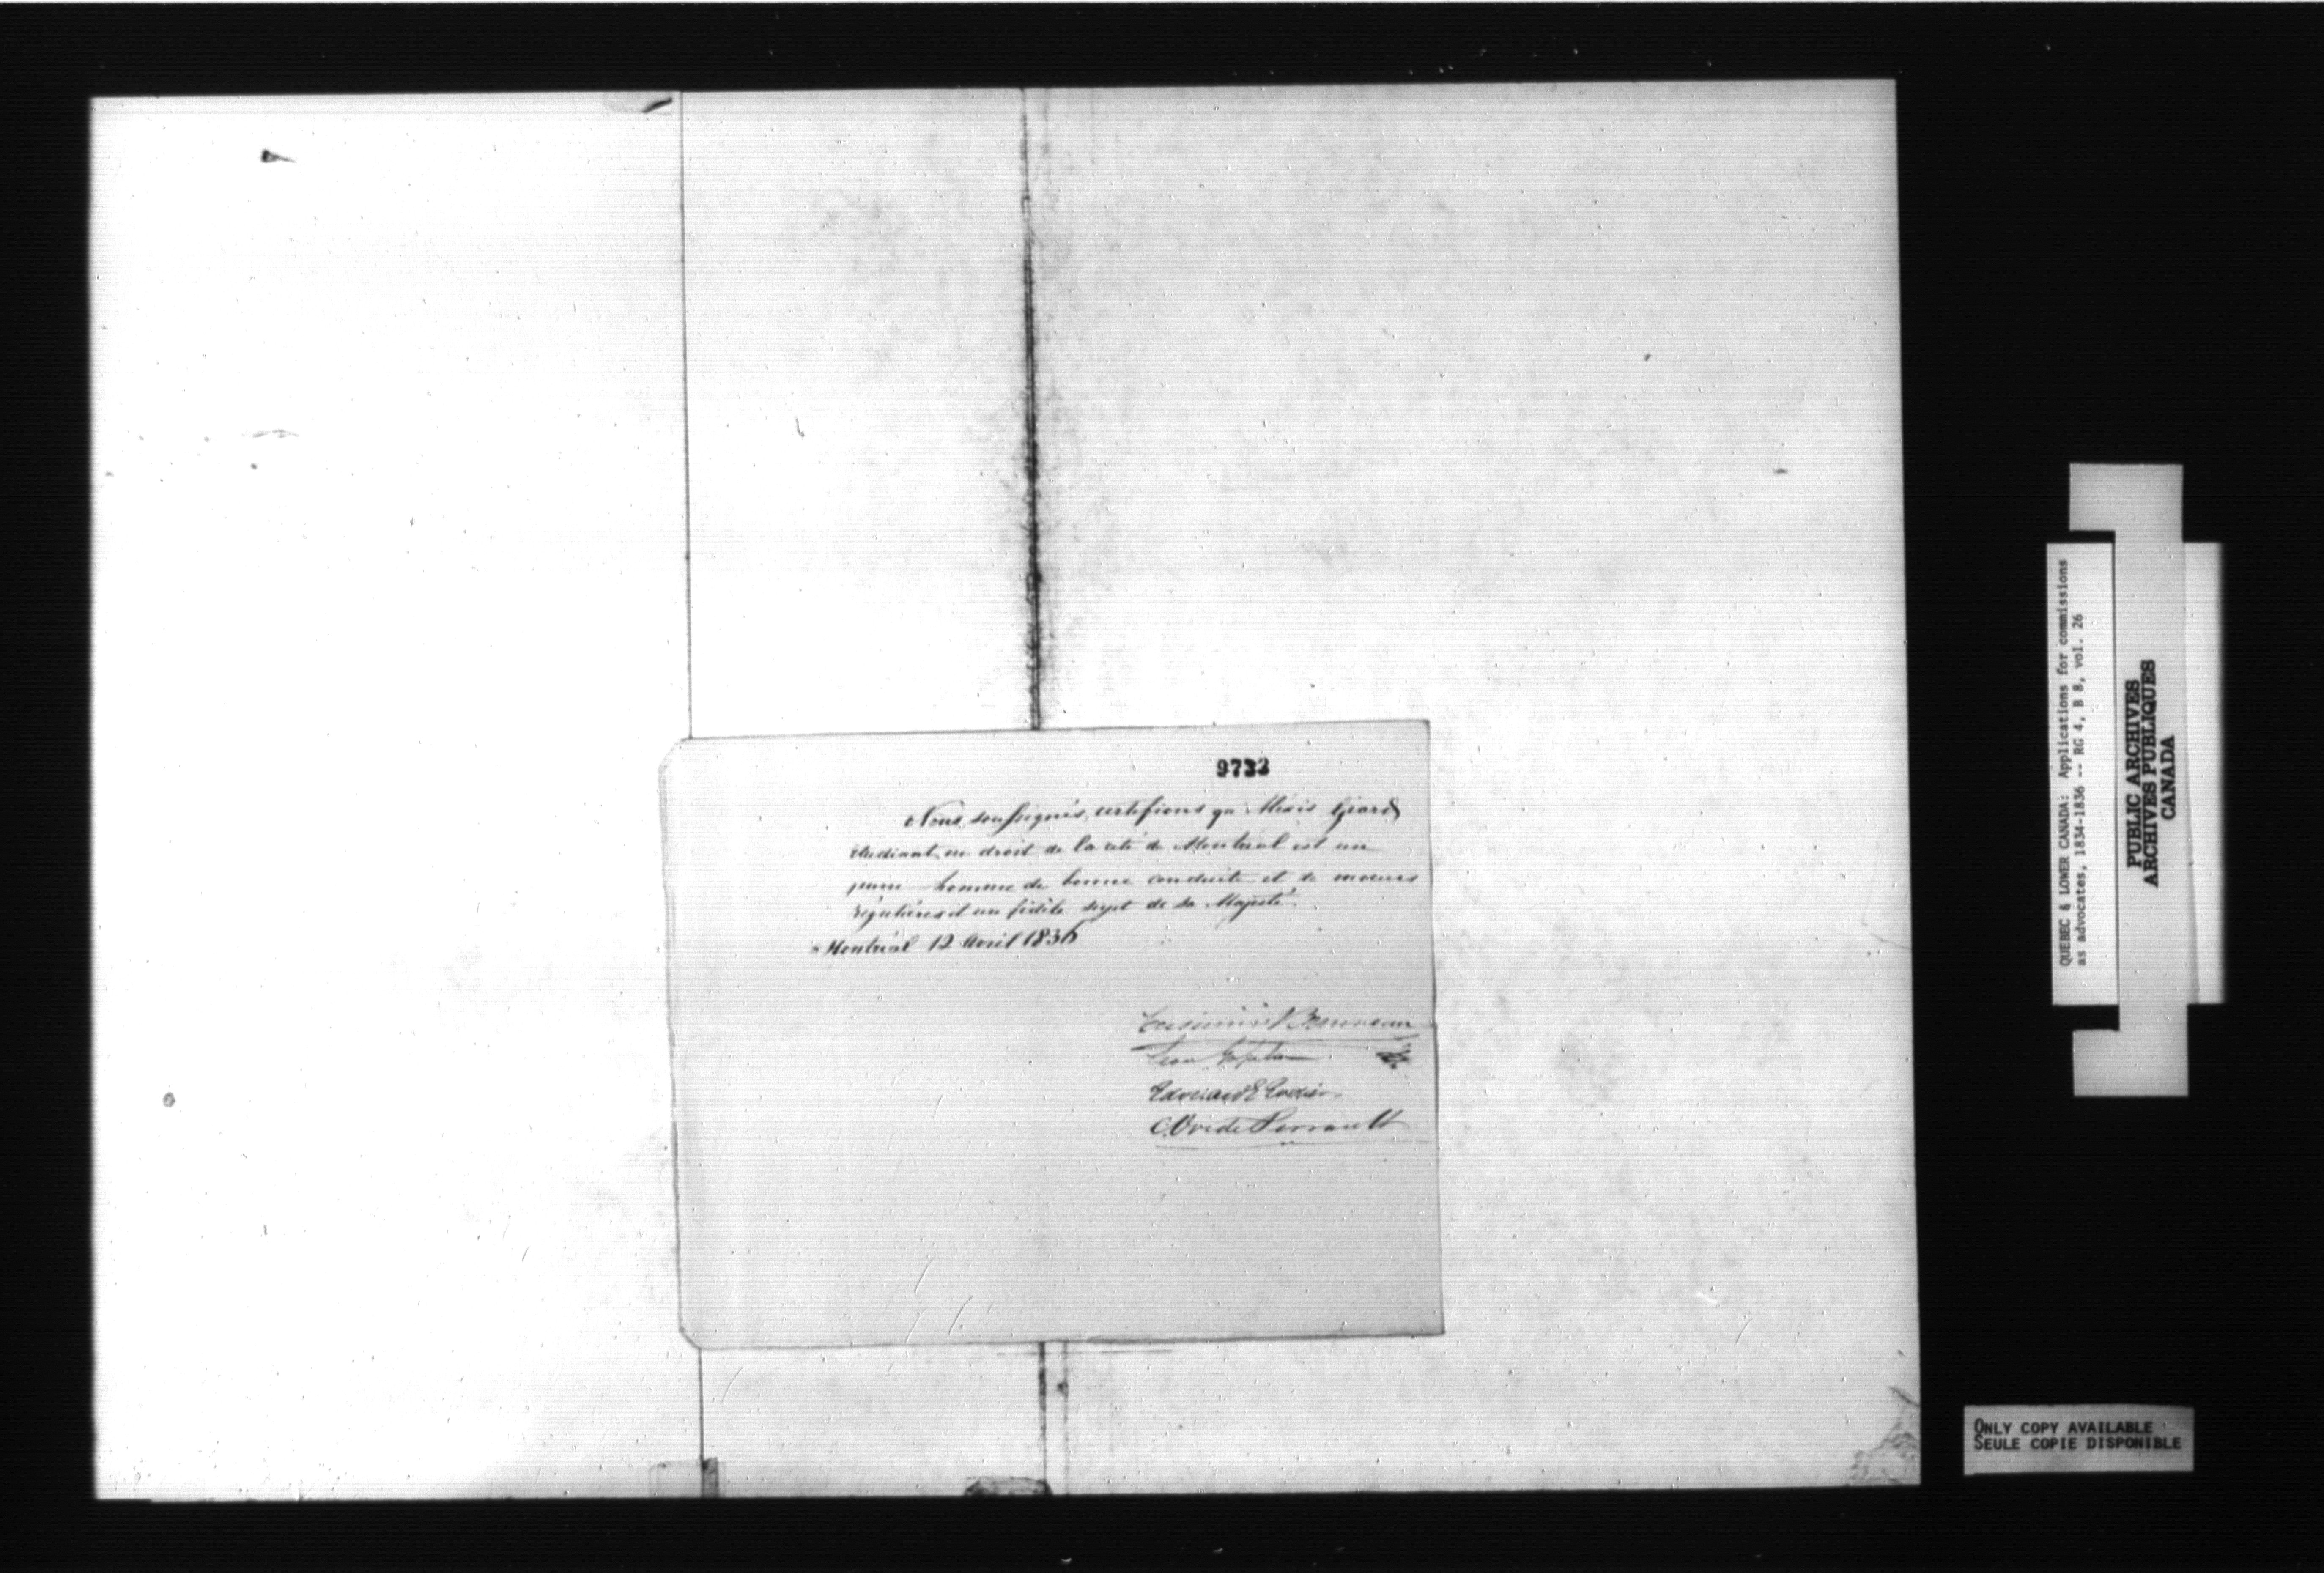 9733
Nous soussignés, certifions qu'Alexis Girard
étudiant en droit de la cité de Montréal est un
jeune homme de bonne conduite et de moeurs
régulières et un fidèle sujet de sa Majesté.
Montréal 12 Avril 1836
Edouard E Rodier
C. Ovide Perrault
QUEBEC & LOWER CANADA: Applications for commissions
as advocates, 1834-1836 -- RG 4, B 8, vol. 26
PUBLIC ARCHIVES
ARCHIVES PUBLIQUES
CANADA
ONLY COPY AVAILABLE
SEULE COPIE DISPONIBLE